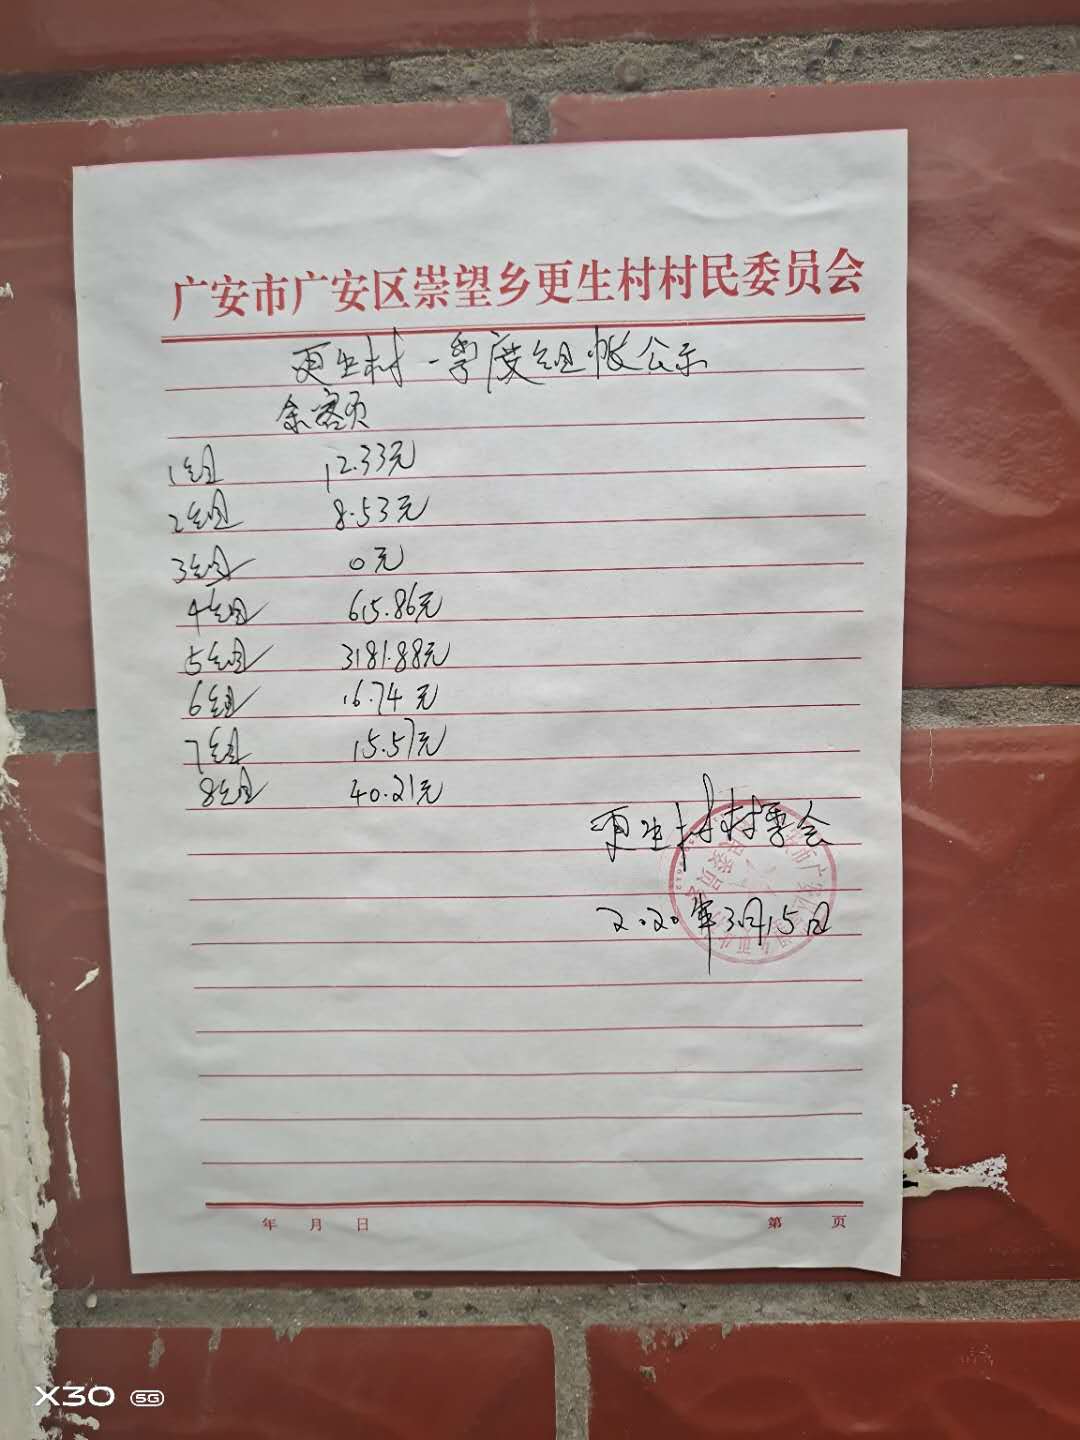 广安市广安区崇望乡更生村村民委员会
更生村一季度组帐公示
余额
1组 12.33元
2组 8.53元
3组 0元
4组 615.86元
5组 3181.88元
6组 16.74元
7组 15.57元
8组 40.21元
更生村村委会
2020年3月15日
年 月 日 第 页
X30 5G